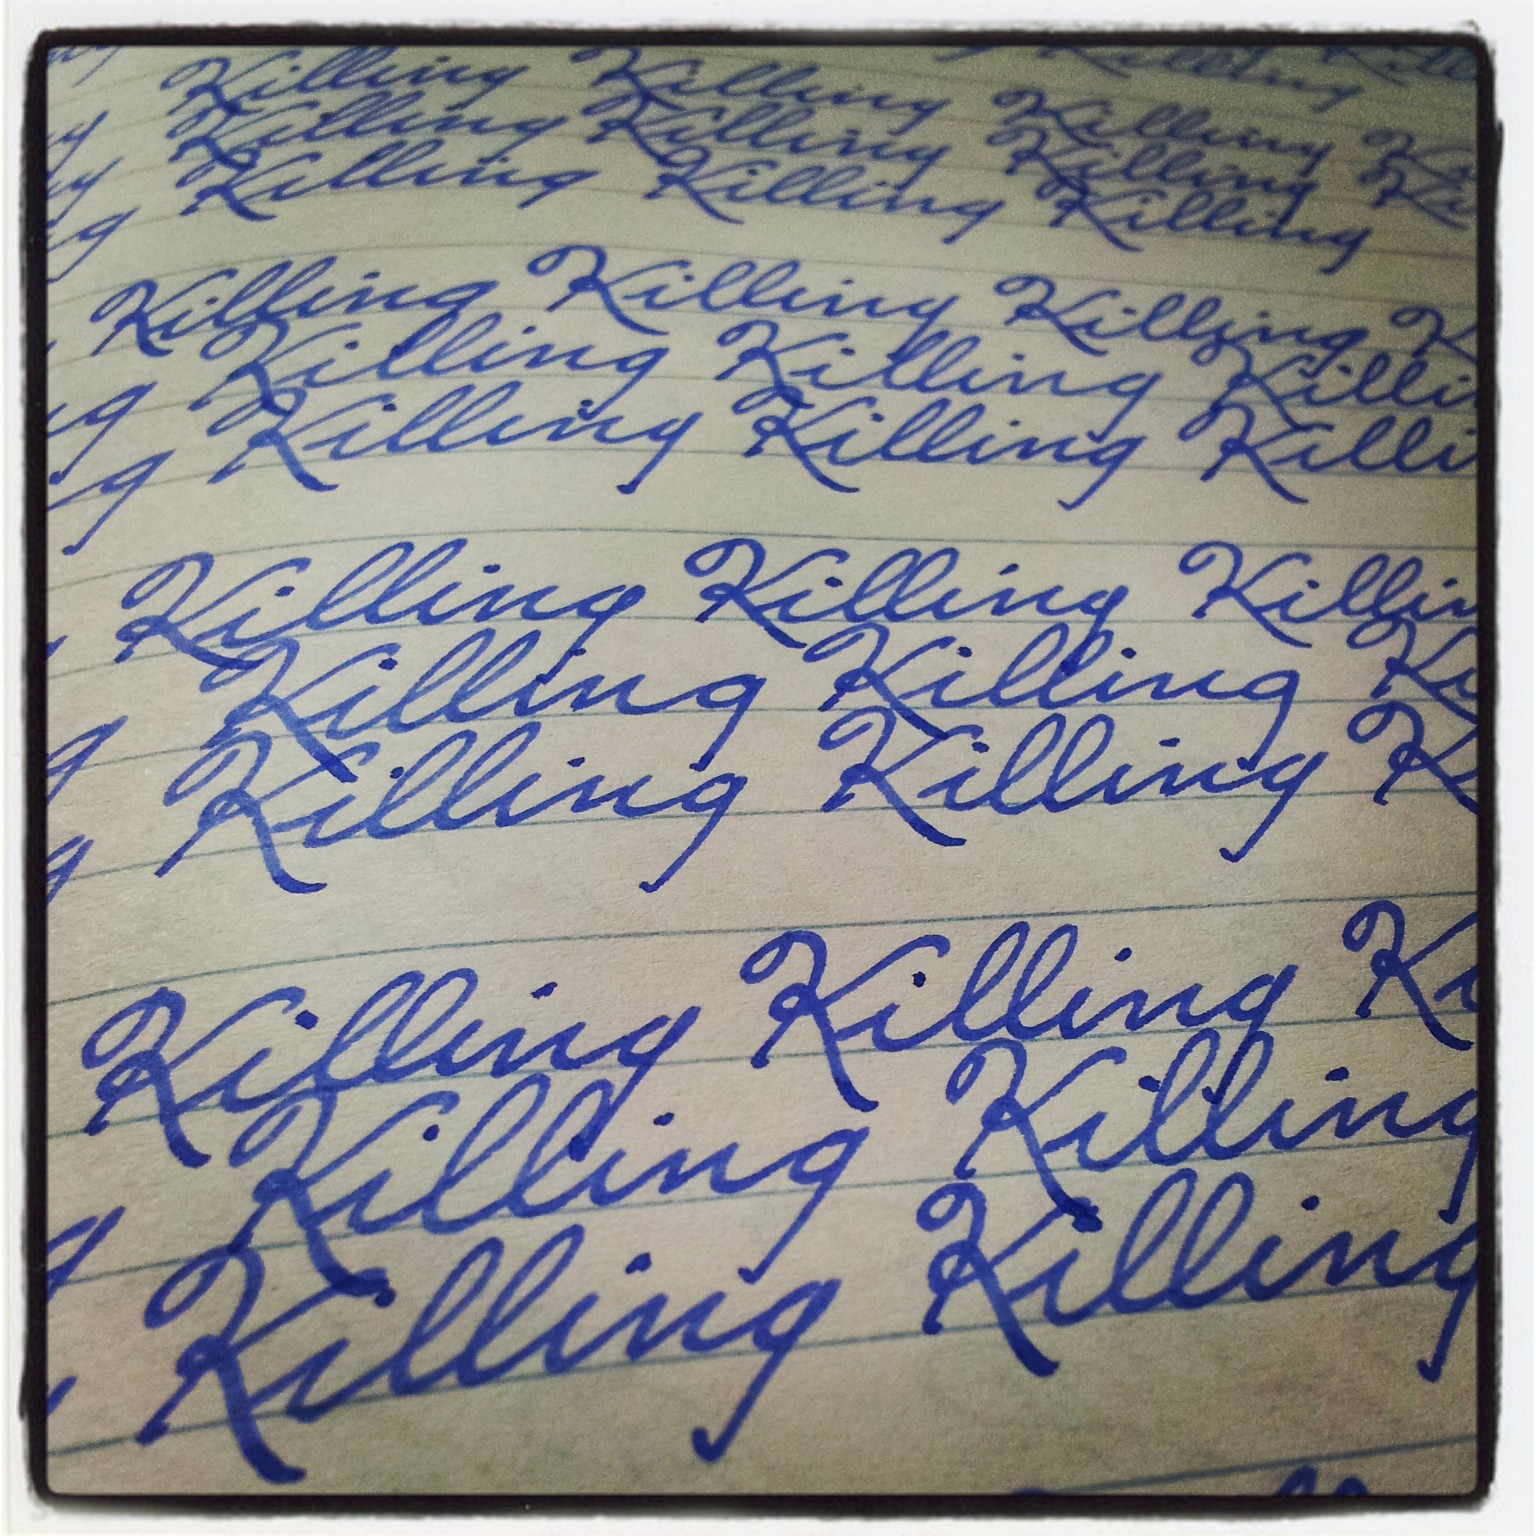 Killing
Killing Killing Killing
Killing Killing Killing
Killing Killing Killing
Killing Killing Killing
Killing Killing
Killing Killing
Killing Killing
Killing Killing
Killing Killing
Killing Killing
Killing Killing
Killing Killing